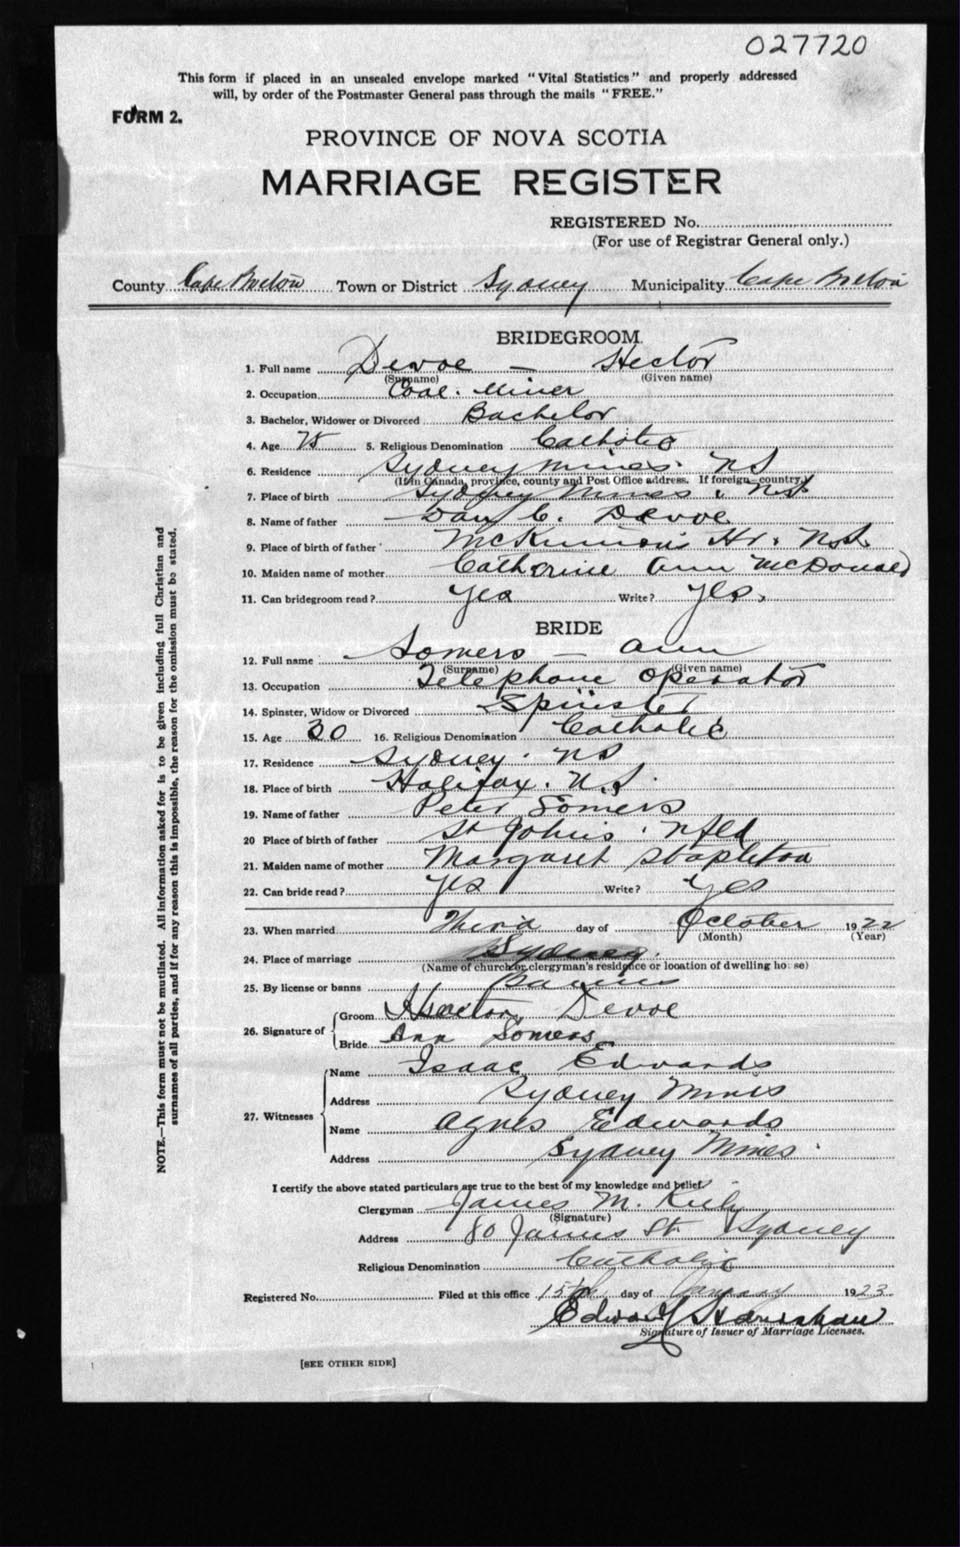 027720
This form if placed in an unsealed envelope marked "Vital Statistics" and properly addressed
will, by order of the Postmaster General pass through the mails "FREE."
FORM 2.
PROVINCE OF NOVA SCOTIA
MARRIAGE REGISTER
REGISTERED No.
(For use of Registrar General only.)
County Cape Breton Town or District Sydney Municipality Cape Breton
BRIDEGROOM.
1. Full name Devoe - Hector
(Surname) (Given name)
2. Occupation Coal Miner
3. Bachelor, Widower or Divorced Bachelor
4. Age 5. Religious Denomination Catholic
6. Residence Sydney Mines. NS
(If in Canada, province, county and Post Office address. If foreign—country.)
7. Place of birth Sydney Mines, N.S.
8. Name of father Dan C. Devoe
9. Place of birth of father McKinnon's Hr. N.S.
10. Maiden name of mother Catherine Ann McDonald
11. Can bridegroom read? Yes Write? Yes.
BRIDE
12. Full name Somers - Ann
(Surname) (Given name)
13. Occupation Telephone Operator
14. Spinster, Widow or Divorced Spinster
15. Age 30 16. Religious Denomination Catholic
17. Residence Sydney. NS
18. Place of birth Halifax. N.S.
19. Name of father Peter Somers
20 Place of birth of father St John's. Nfld
21. Maiden name of mother Margaret Stapleton
22. Can bride read? Yes Write? Yes
23. When married Third day of October 1922
(Month) (Year)
24. Place of marriage Sydney.
(Name of church or clergyman's residence or location of dwelling house)
25. By license or banns Banns
26. Signature of Groom Hector Devoe
Bride Ann Somers
27. Witnesses Name Isaac Edwards
Address Sydney Mines
Name Agnes Edwards
Address Sydney Mines.
I certify the above stated particulars are true to the best of my knowledge and belief.
Clergyman James M. Kiely
(Signature)
Address 80 James St. Sydney
Religious Denomination Catholic
Registered No. Filed at this office 15th day of January 1923
Edward
Signature of Issuer of Marriage Licenses.
[SEE OTHER SIDE]
NOTE.—This form must not be mutilated. All information asked for is to be given including full Christian and
surnames of all parties, and if for any reason this is impossible, the reason for the omission must be stated.